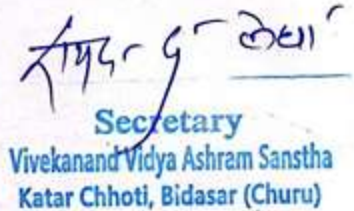 Secretary
Vivekanand Vidya Ashram Sanstha
Katar Chhoti, Bidasar (Churu)